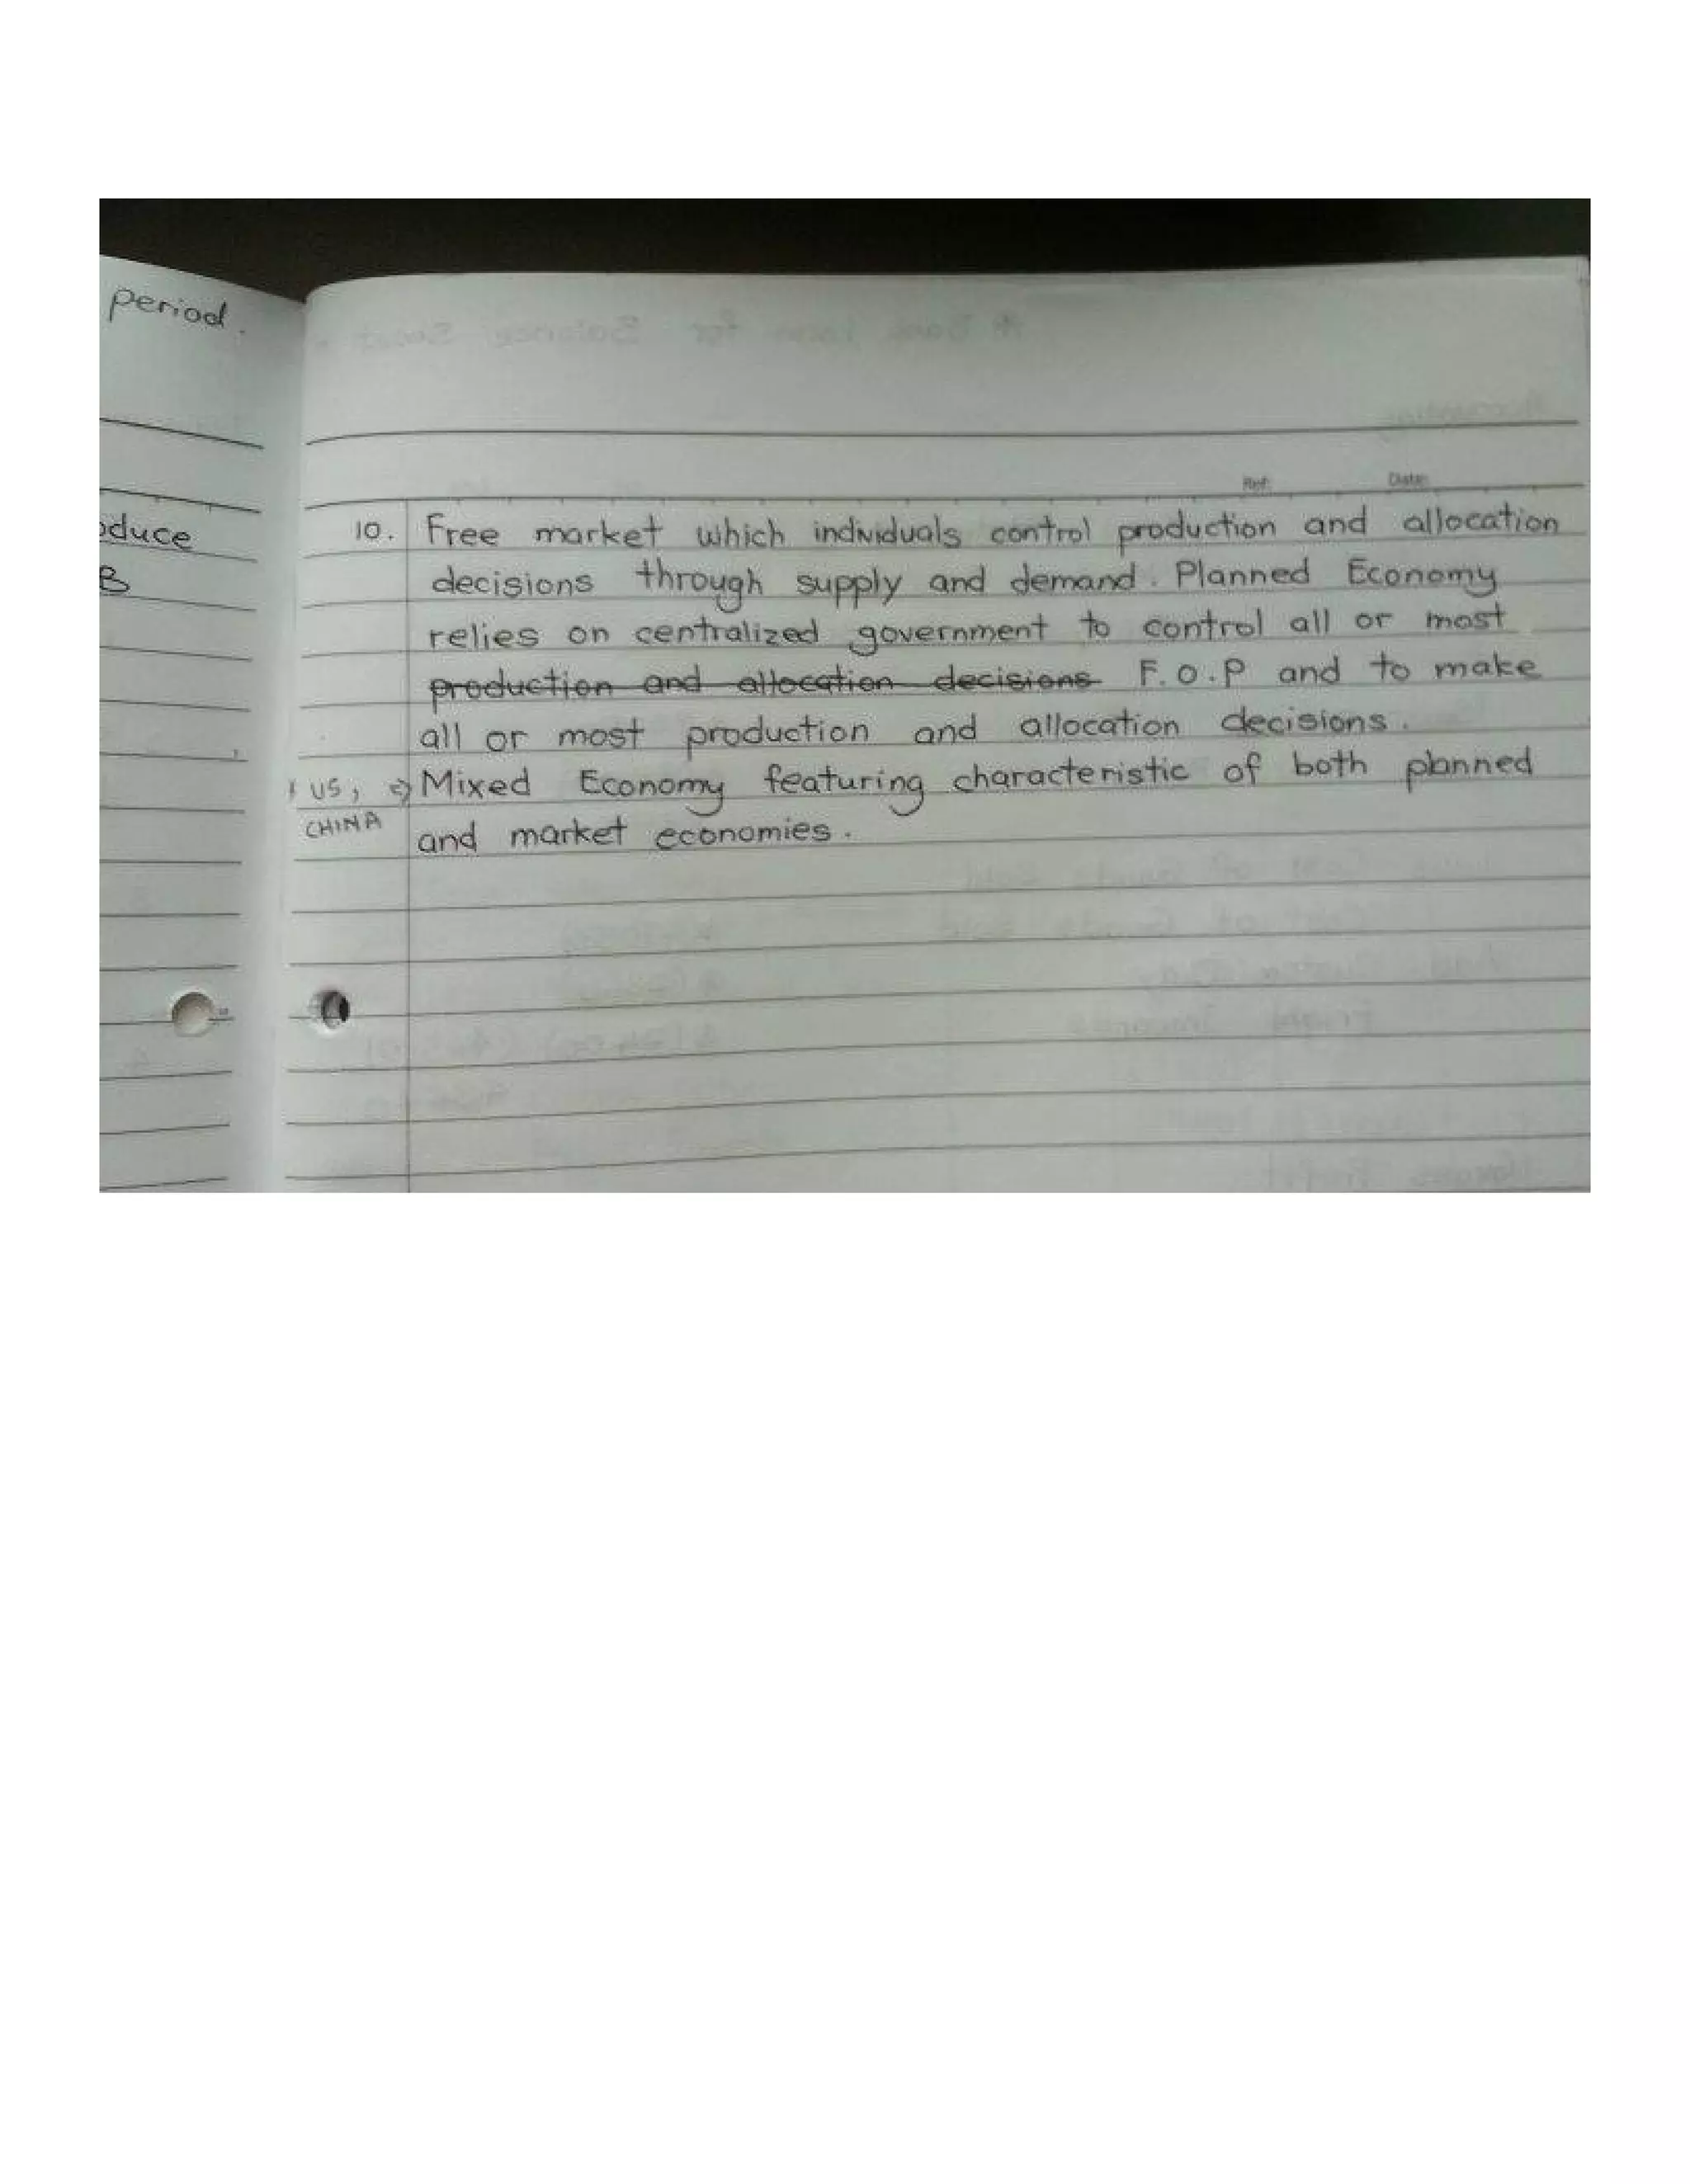 period.
oduce
B
Ref: Date:
10. Free market which individuals control production and allocation
decisions through supply and demand. Planned Economy
relies on centralized government to control all or most
production and allocation decisions F.O.P and to make
all or most production and allocation decisions.
US, => Mixed Economy featuring characteristic of both planned
CHINA and market economies.